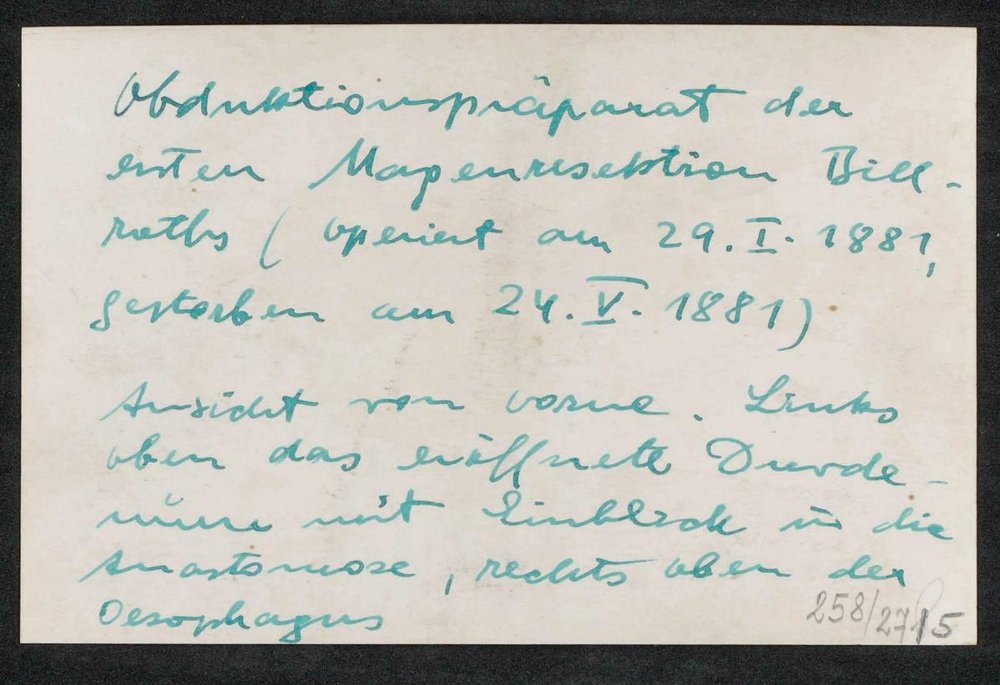 Obduktionspräparat der
ersten Magenresektion Bill-
roths (operiert am 29. I. 1881,
gestorben am 24. V. 1881)
Ansicht von vorne. Links
oben das eröffnete Duode-
num mit Einblick in die
Anastomose, rechts oben der
Oesophagus
258/2715